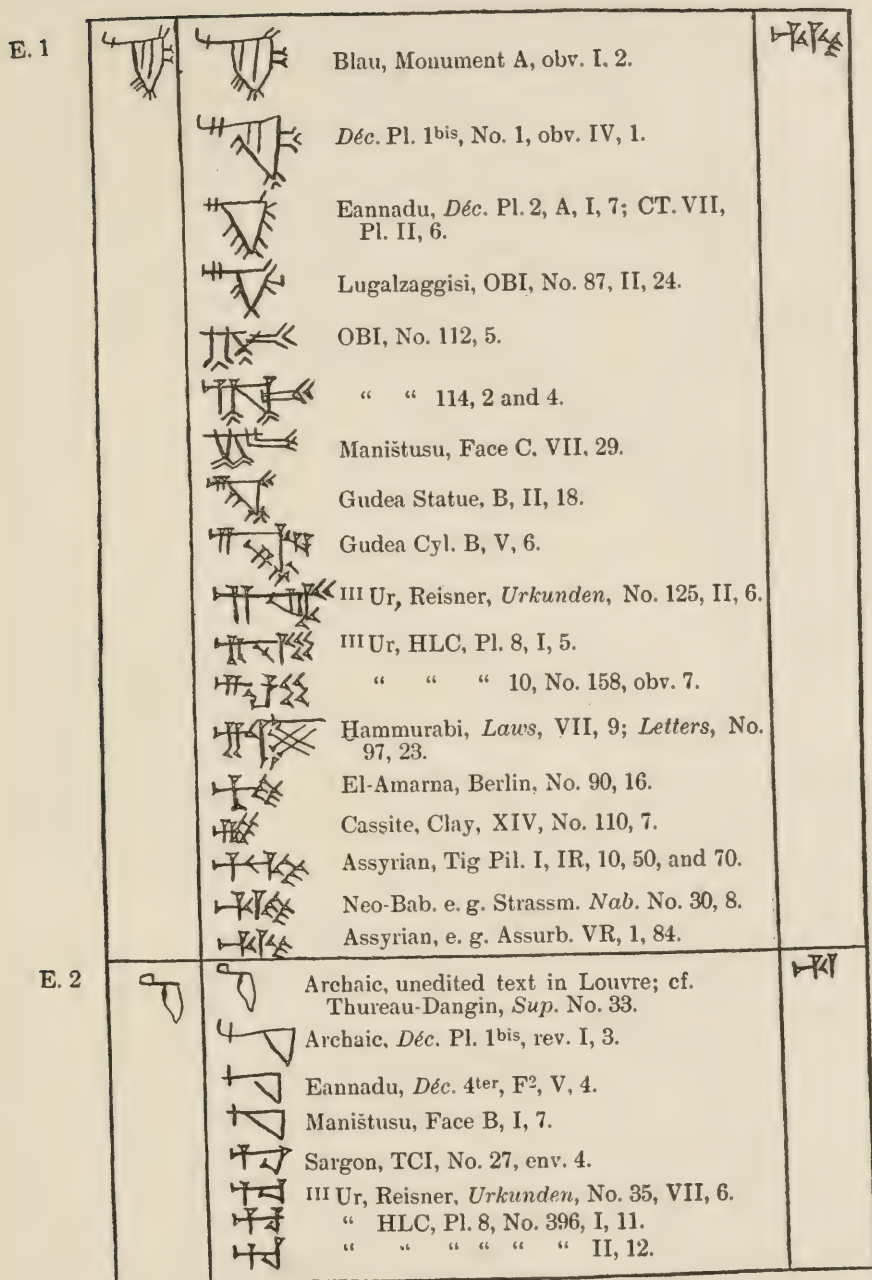 E. 1
Blau, Monument A, obv. I. 2.
Déc. Pl. 1bis, No. 1, obv. IV, 1.
Eannadu, Déc. Pl. 2, A, I, 7; CT. VII,
Pl. II, 6.
Lugalzaggisi, OBI, No. 87, II, 24.
OBI, No. 112, 5.
“ “ 114, 2 and 4.
Maništusu, Face C. VII, 29.
Gudea Statue, B, II, 18.
Gudea Cyl. B, V, 6.
III Ur, Reisner, Urkunden, No. 125, II, 6.
III Ur, HLC, Pl. 8, I, 5.
“ “ “ 10, No. 158, obv. 7.
Ḫammurabi, Laws, VII, 9; Letters, No.
97, 23.
El-Amarna, Berlin, No. 90, 16.
Cassite, Clay, XIV, No. 110, 7.
Assyrian, Tig Pil. I, IR, 10, 50, and 70.
Neo-Bab. e. g. Strassm. Nab. No. 30, 8.
Assyrian, e. g. Assurb. VR, 1, 84.
E. 2
Archaic, unedited text in Louvre; cf.
Thureau-Dangin, Sup. No. 33.
Archaic, Déc. Pl. 1bis, rev. I, 3.
Eannadu, Déc. 4ter, F2, V, 4.
Maništusu, Face B, I, 7.
Sargon, TCI, No. 27, env. 4.
III Ur, Reisner, Urkunden, No. 35, VII, 6.
“ HLC, Pl. 8, No. 396, I, 11.
“ “ “ “ “ “ II, 12.